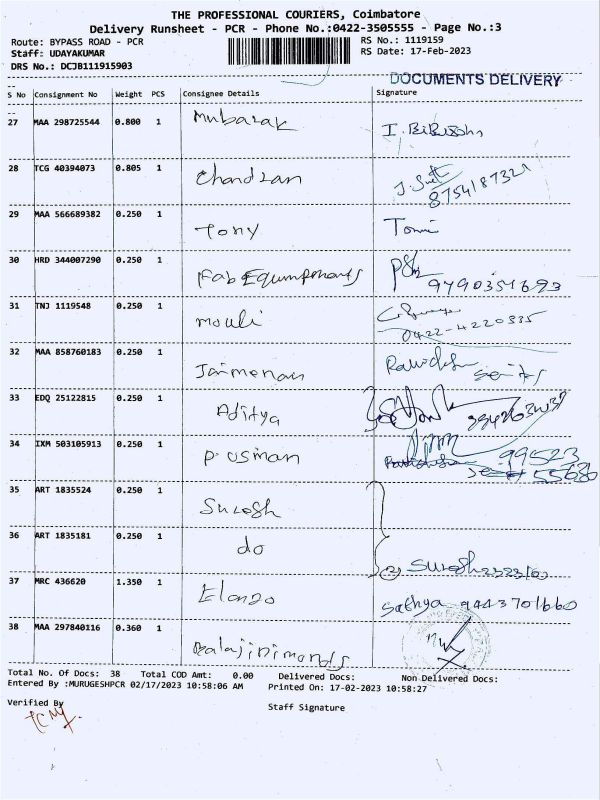 THE PROFESSIONAL COURIERS, Coimbatore
Delivery Runsheet - PCR - Phone No.:0422-3505555 - Page No.:3
Route: BYPASS ROAD - PCR
RS No.: 1119159
Staff: UDAYAKUMAR
RS Date: 17-Feb-2023
DRS No.: DCJB111915903
DOCUMENTS DELIVERY
S No Consignment No Weight PCS Consignee Details Signature
27 MAA 298725544 0.800 1 Mubarak
28 TCG 40394073 0.805 1 Chandran 8754187321
29 MAA 566689382 0.250 1 Tony Tomi
30 HRD 344007290 0.250 1 Fab Equmpments 9790351693
31 TNJ 1119548 0.250 1 Mouli 0422-4220335
32 MAA 858760183 0.250 1 Jaimonan
33 EDQ 25122815 0.250 1 Aditya
34 IXM 503105913 0.250 1 P. Usman 99523
35 ART 1835524 0.250 1 Suresh
36 ART 1835181 0.250 1 do Suresh
37 MRC 436620 1.350 1 Elanzo Sathya 9443701660
38 MAA 297840116 0.360 1 Balaji Dimonds
Total No. Of Docs: 38 Total COD Amt: 0.00 Delivered Docs: Non Delivered Docs:
Entered By :MURUGESHPCR 02/17/2023 10:58:06 AM Printed On: 17-02-2023 10:58:27
Verified By
Staff Signature